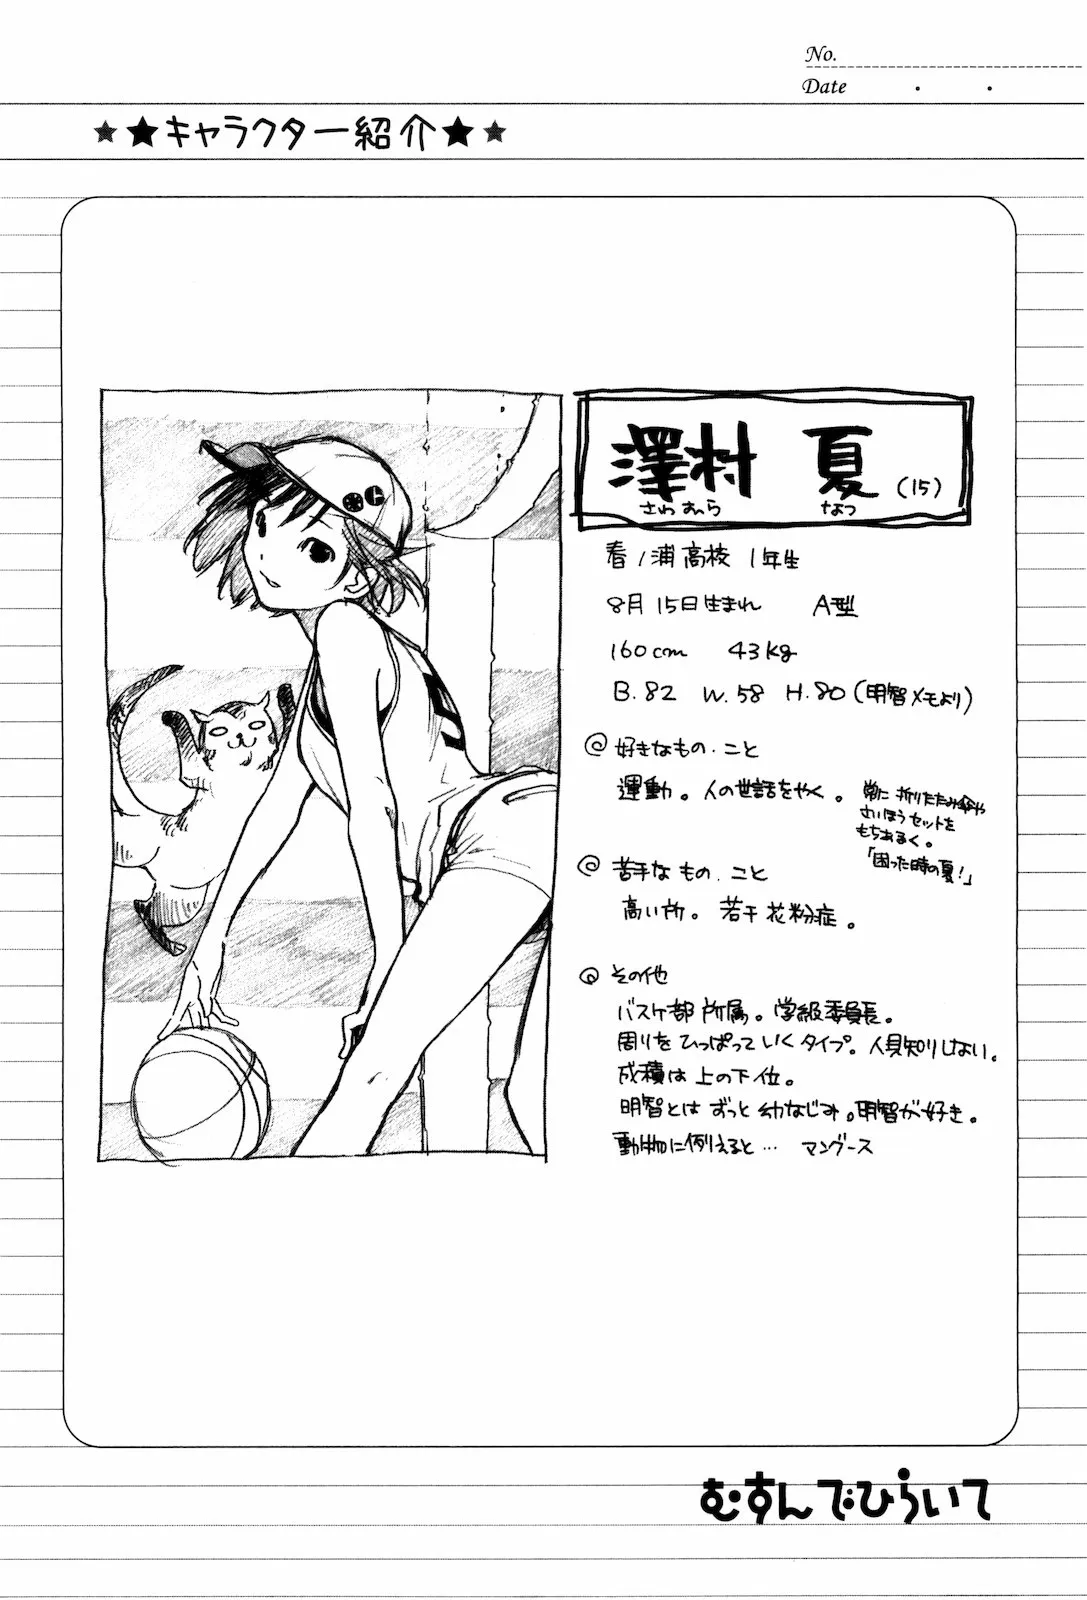 No.
Date
★★キャラクター紹介★★
澤村 夏 (15)
さわむら なつ
春ノ浦高校 1年生
8月15日生まれ A型
160cm 43kg
B.82 W.58 H.80(明智メモより)
好きなもの.こと
運動。人の世話をやく。
常に折りたたみ傘や
さいほうセットを
もちあるく。
「困った時の夏!」
苦手なもの.こと
高い所。若干花粉症。
その他
バスケ部所属。学級委員長。
周りをひっぱっていくタイプ。人見知りしない。
成積は上の下位。
明智とはずっと幼なじみ。明智が好き。
動物に例えると… マングース
むすんでひらいて